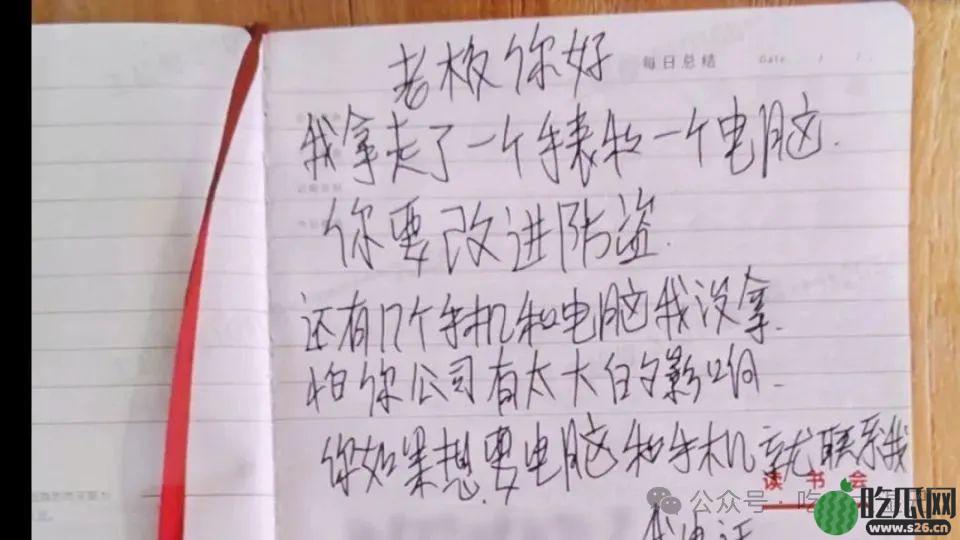 老板你好
每日总结 Date / /
我拿走了一个手表和一个电脑.
你要改进防盗.
还有几个手机和电脑我没拿.
怕你公司有太大的影响.
你如果想要电脑和手机就联系我
读书会
公众号·吃
我电话
吃瓜网
www.s26.cn